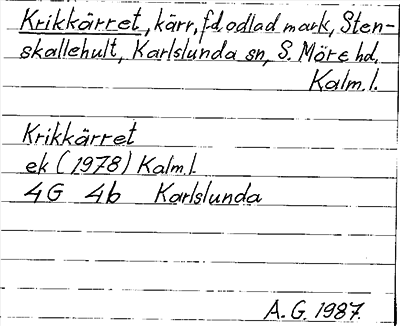 Krikkärret, kärr, fd. odlad mark, Sten-
skallehult, Karlslunda sn, S. Möre hd,
Kalm. l.
Krikkärret
ek (1978) Kalm. l.
4G 4b Karlslunda
A. G. 1987.